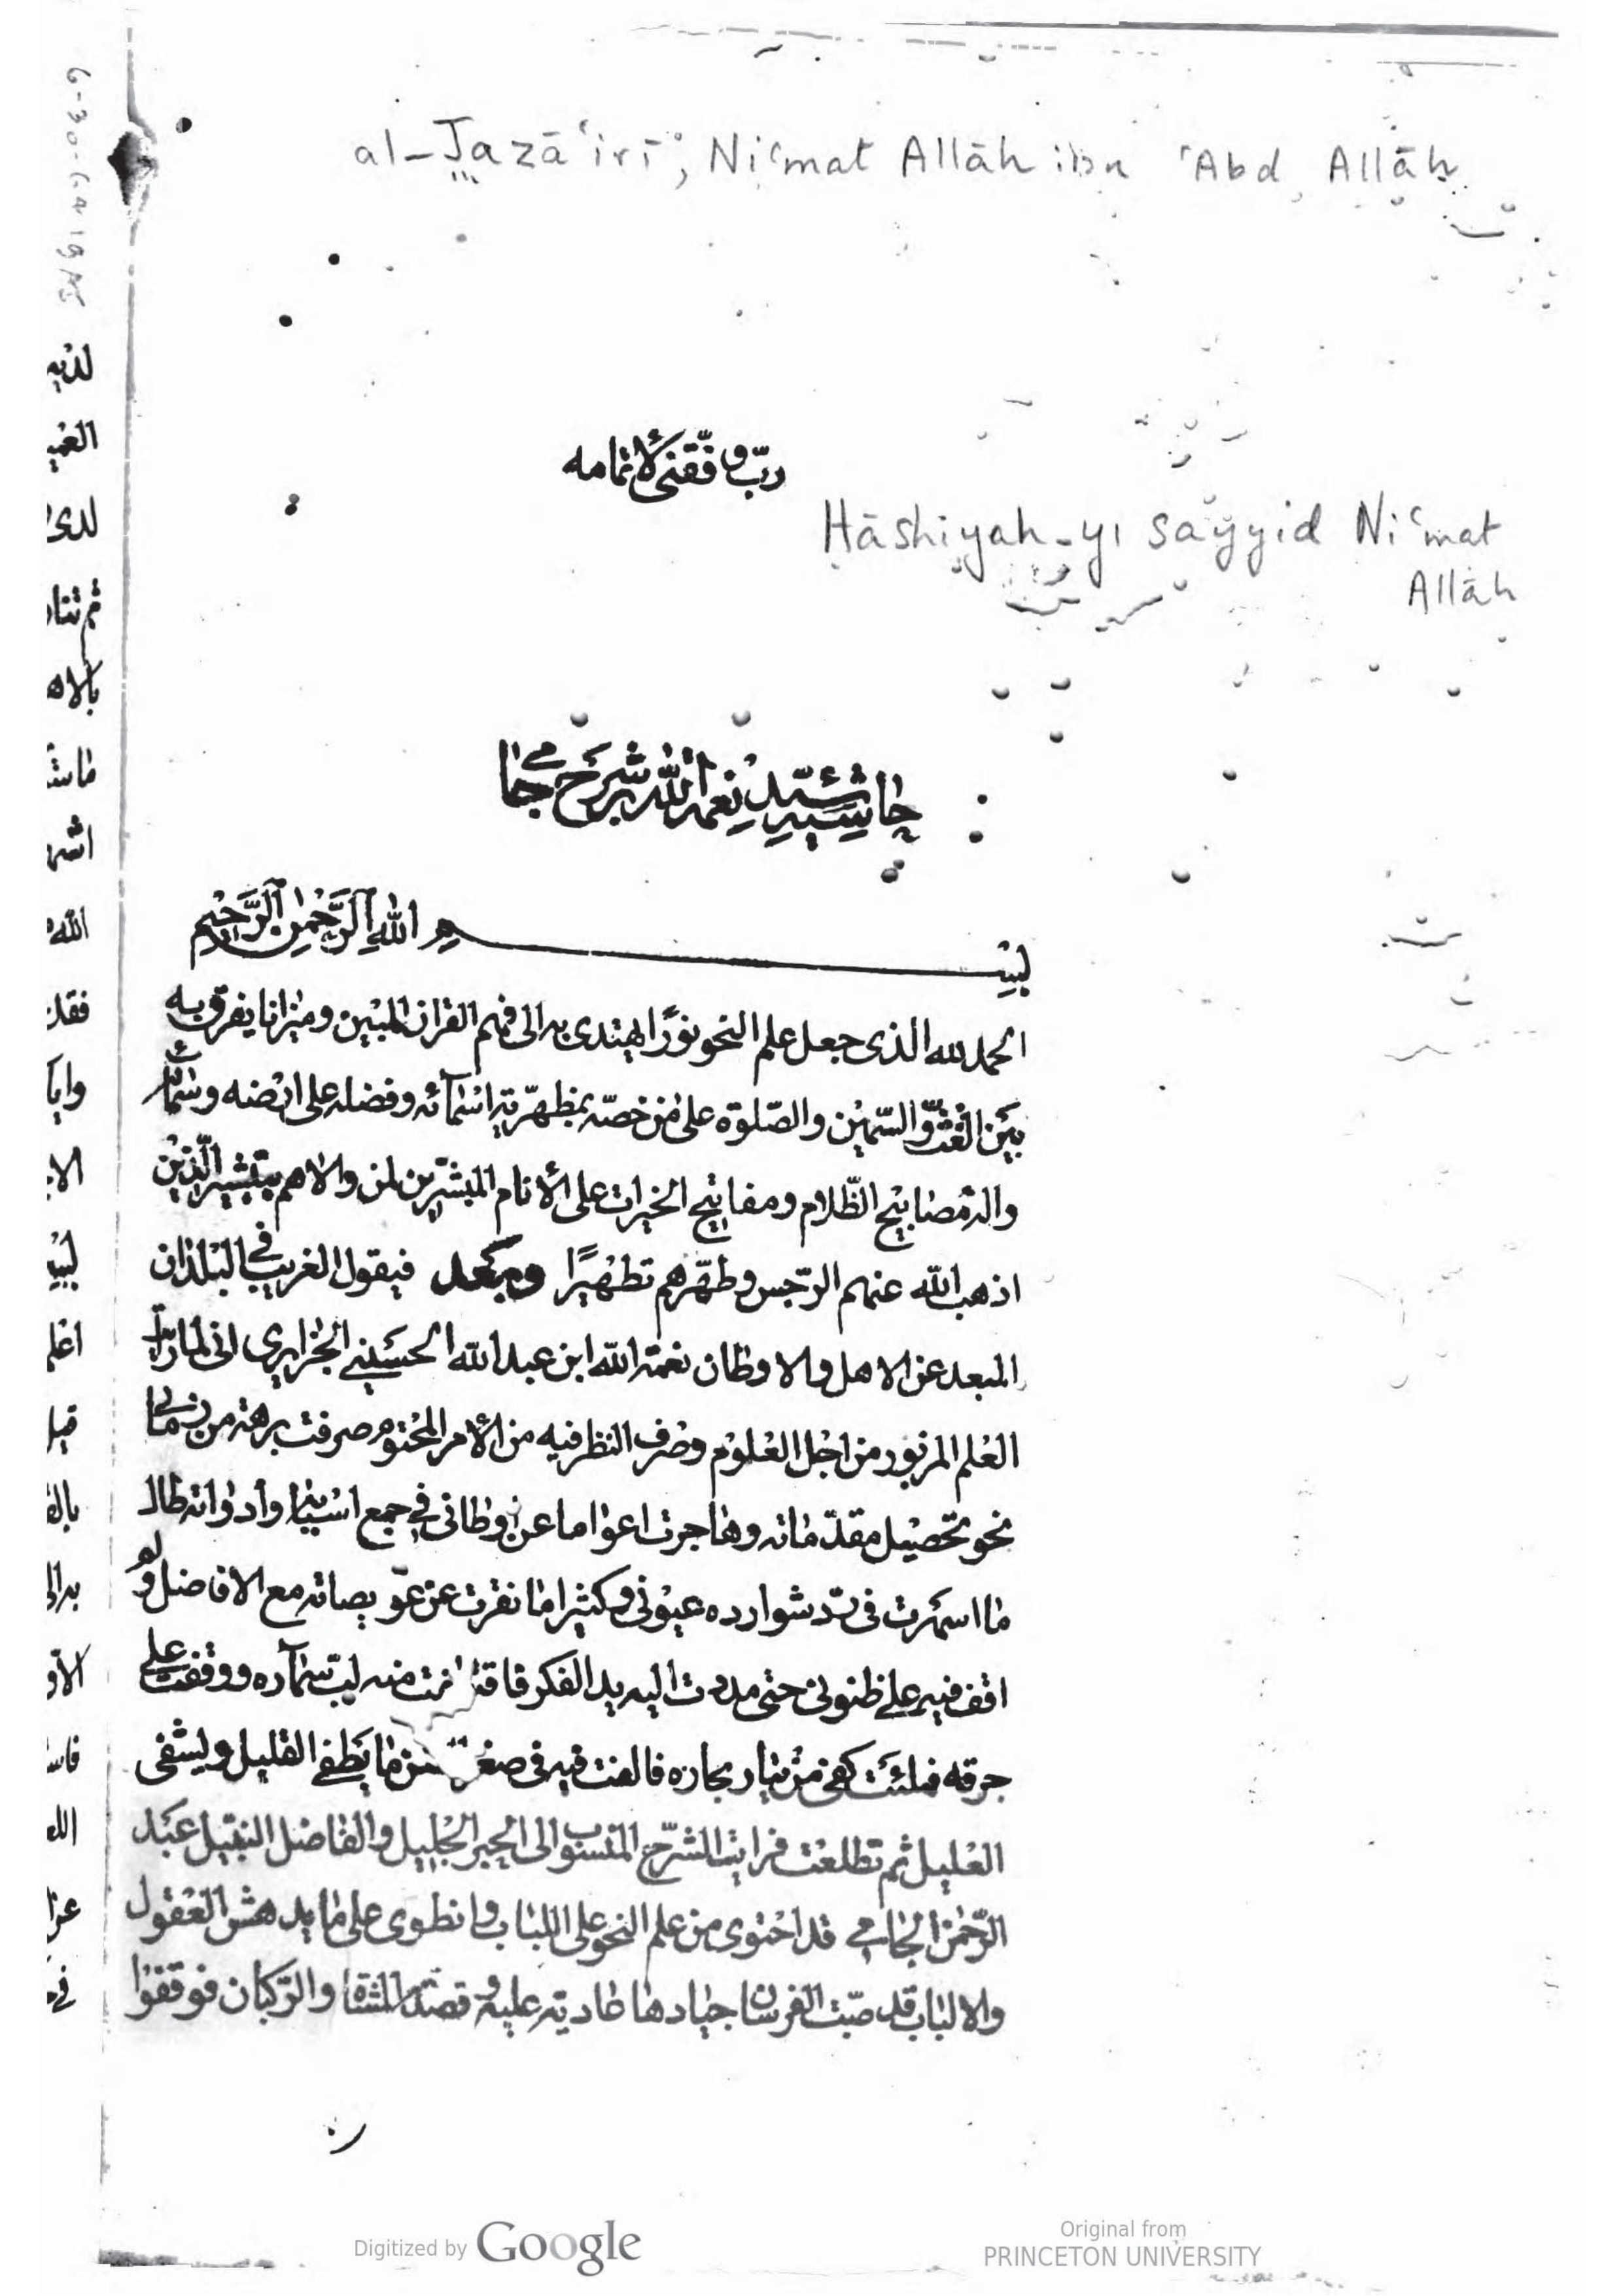 al-Jazā'irī, Ni'mat Allāh ibn 'Abd Allāh
ربّ وفّقنى لاتمامه
Hāshiyah-yi sayyid Ni'mat
Allāh
حاشيه سيّد نعمة الله بر شرح جامى
بسم الله الرحمن الرحيم
الحمد لله الذى جعل علم النحو نورًا يهتدى به الى فهم القران المبين وميزانا يفرق به
بين الغثّ والسّمين والصّلوة على من خصّه بمظهريّة اسمائه وفضله على ارضه وسمائه
واله مصابيح الظّلام ومفاتيح الخيرات على الأنام المبشرين لمن والاهم بتبشير الّذين
اذهب الله عنهم الرّجس وطهّرهم تطهيرًا وبعد فيقول الغريب فى البلدان
المبعد عن الاهل والاوطان نعمة الله ابن عبد الله الحسينى الجزايرى انى لما رايت
العلم المزبور من اجل العلوم وصرف النظر فيه من الأمر المحتوم صرفت برهة من زمانى
نحو تحصيل مقدّماته وهاجرت اعواما عن اوطانى فى جمع اسبابه وأدواته طال
ما اسهرت فى شوارده عيونى وكثيرا ما نفرت عن عويصاته مع الافاضل ولم
اقف فيه على ظنونى حتى مددت اليه يد الفكر منه لب ووقفت على
جرفه فملئت كفى من تيار بحاره فالفت فيه فى صغر ما يطفى الغليل ويشفى
العليل ثم تطلعت فرايت الشرح المنسوب الى الحبر الجليل والفاضل النبيل عبد
الرّحمن الجامى قد احتوى من علم النحو على اللباب وانطوى على ما يدهش العقول
والالباب قد صبّت الفرسان جيادها عادية عليه وقصدته المشاة والرّكبان فوقفوا
Digitized by Google
Original from
PRINCETON UNIVERSITY